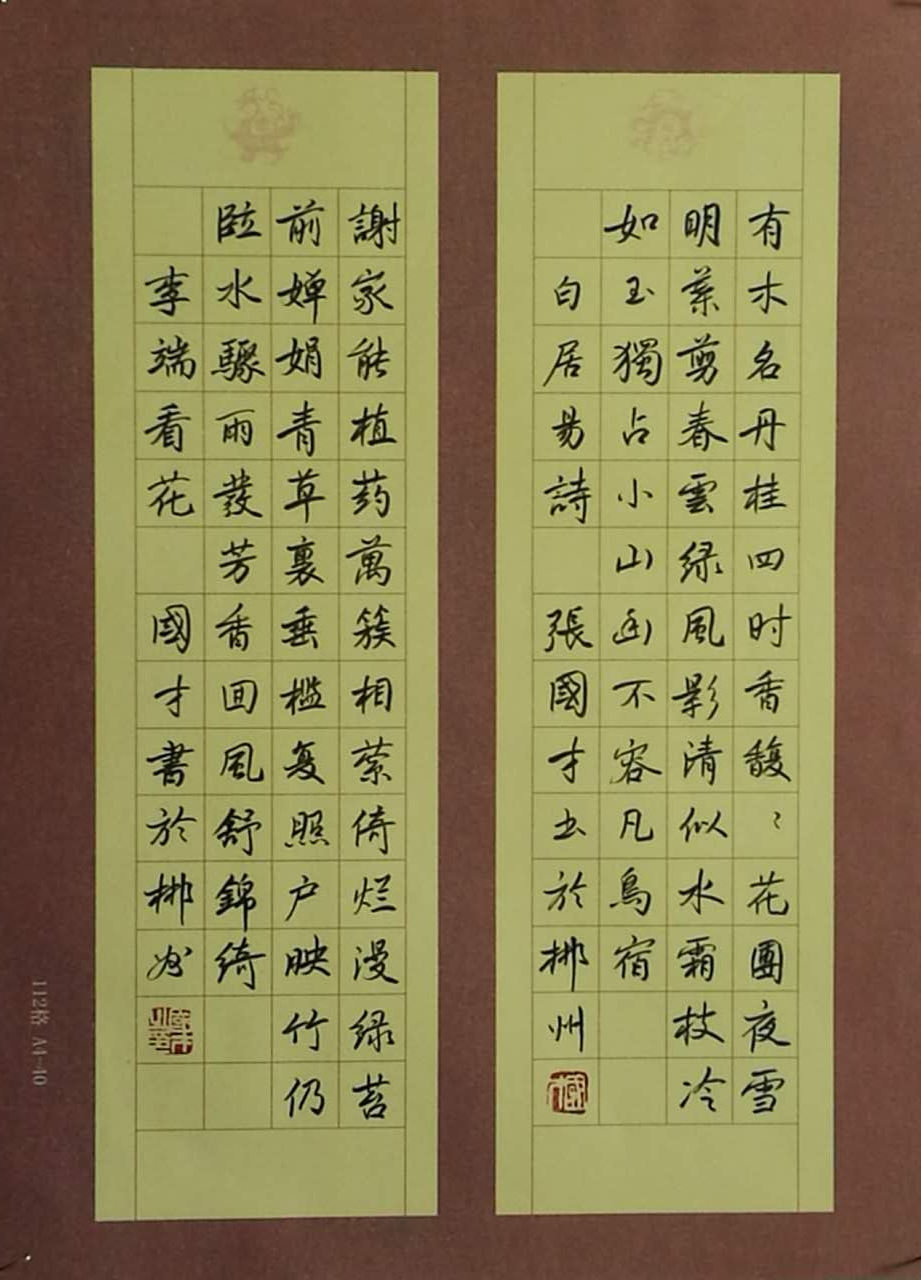 有木名丹桂四时香馥〻花團夜雪
明葉剪春雲绿風影清似水霜枝冷
如玉獨占小山幽不容凡鳥宿
白居易詩 張國才书於郴州
謝家能植药萬簇相萦倚烂漫绿苔
前婵娟青草裏垂槛复照户映竹仍
临水驟雨發芳香回風舒錦绮
李端看花 國才書於郴州
112格 A4-40